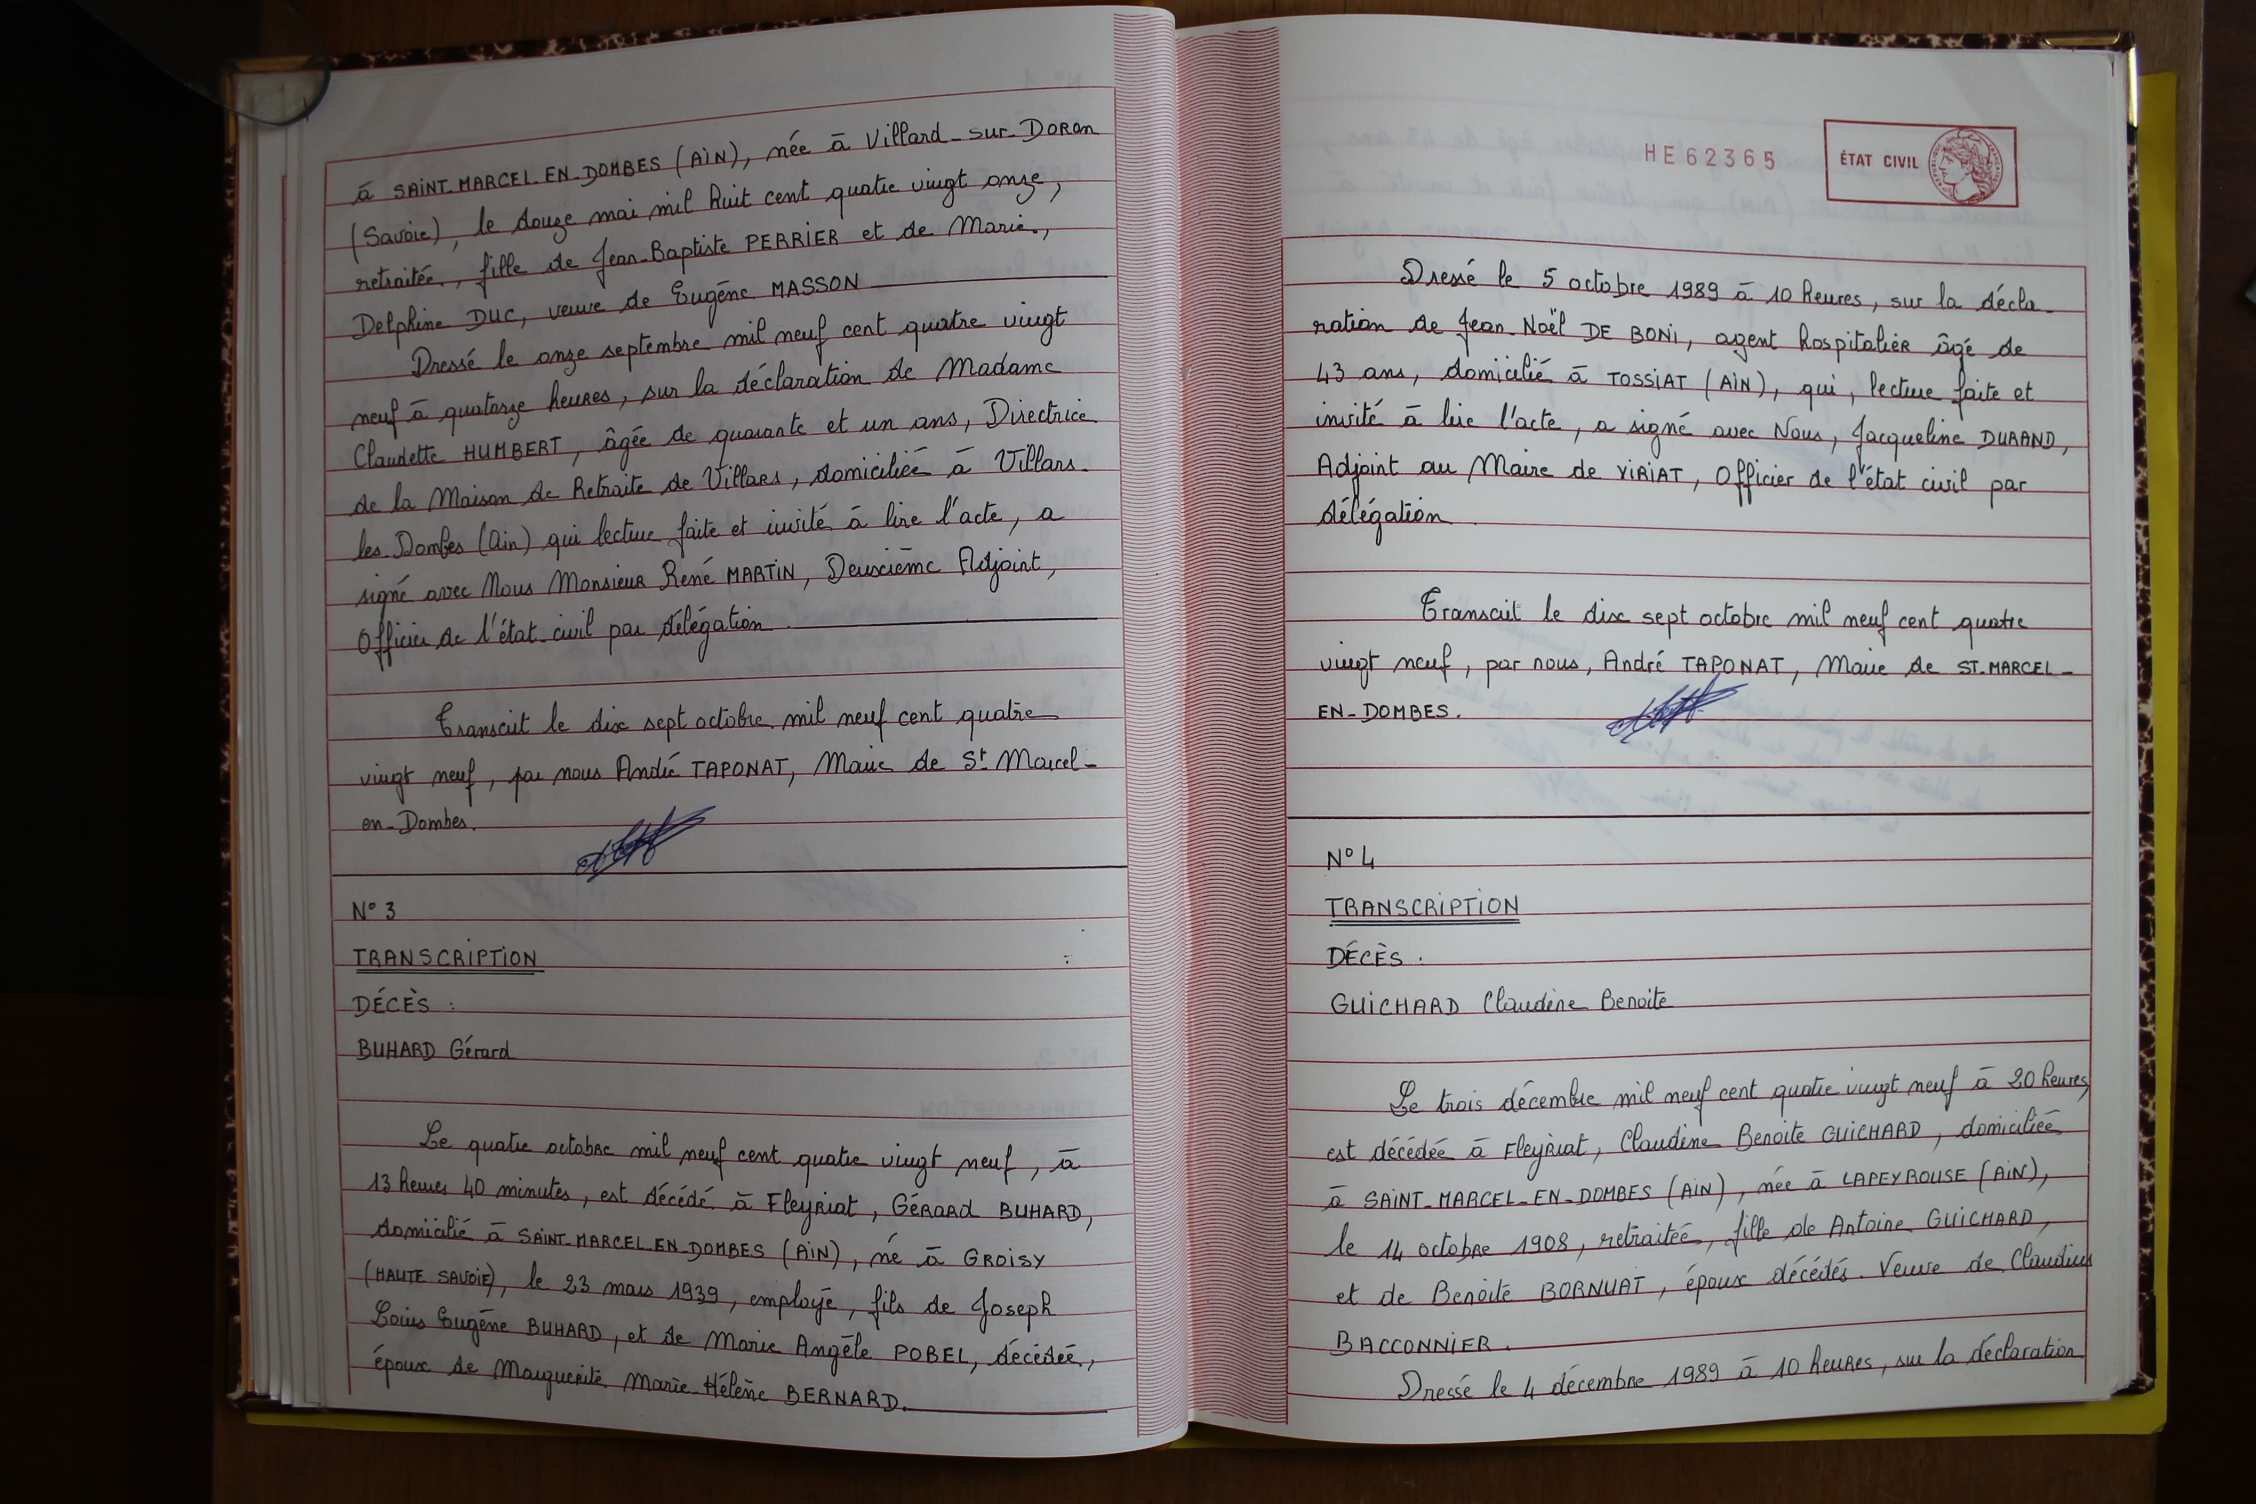 à SAINT-MARCEL-EN-DOMBES (AIN), née à Villard-sur-Doron
(Savoie), le douze mai mil huit cent quatre vingt onze,
retraitée, fille de Jean-Baptiste PERRIER et de Marie,
Delphine DUC, veuve de Eugène MASSON
Dressé le onze septembre mil neuf cent quatre vingt
neuf à quatorze heures, sur la déclaration de Madame
Claudette HUMBERT, âgée de quarante et un ans, Directrice
de la Maison de Retraite de Villars, domiciliée à Villars-
les-Dombes (Ain) qui lecture faite et invité à lire l'acte, a
signé avec Nous Monsieur René MARTIN, Deuxième Adjoint,
Officier de l'état-civil par délégation
Transcrit le dix sept octobre mil neuf cent quatre
vingt neuf, par nous André TAPONAT, Maire de St Marcel-
en-Dombes.
N° 3
TRANSCRIPTION
DÉCÈS :
BUHARD Gérard
Le quatre octobre mil neuf cent quatre vingt neuf, à
13 heures 40 minutes, est décédé à Fleyriat, Gérard BUHARD,
domicilié à SAINT-MARCEL-EN-DOMBES (AIN), né à GROISY
(HAUTE SAVOIE), le 23 mars 1939, employé, fils de Joseph
Louis Eugène BUHARD, et de Marie Angèle POBEL, décédée,
époux de Marguerite Marie-Hélène BERNARD.
HE62365
ÉTAT CIVIL
Dressé le 5 octobre 1989 à 10 heures, sur la décla-
ration de Jean-Noël DE BONI, agent hospitalier âgé de
43 ans, domicilié à TOSSIAT (AIN), qui, lecture faite et
invité à lire l'acte, a signé avec Nous, Jacqueline DURAND,
Adjoint au Maire de VIRIAT, Officier de l'état civil par
délégation.
Transcrit le dix sept octobre mil neuf cent quatre
vingt neuf, par nous, André TAPONAT, Maire de ST. MARCEL-
EN-DOMBES.
N° 4
TRANSCRIPTION
DÉCÈS.
GUICHARD Claudène Benoite
Le trois décembre mil neuf cent quatre vingt neuf à 20 heures,
est décédée à Fleyriat, Claudène Benoite GUICHARD, domiciliée
à SAINT-MARCEL-EN-DOMBES (AIN), née à LAPEYROUSE (AIN),
le 14 octobre 1908, retraitée, fille de Antoine GUICHARD,
et de Benoite BORNUAT, époux décédés. Veuve de Claudius
BACCONNIER.
Dressé le 4 décembre 1989 à 10 heures, sur la déclaration